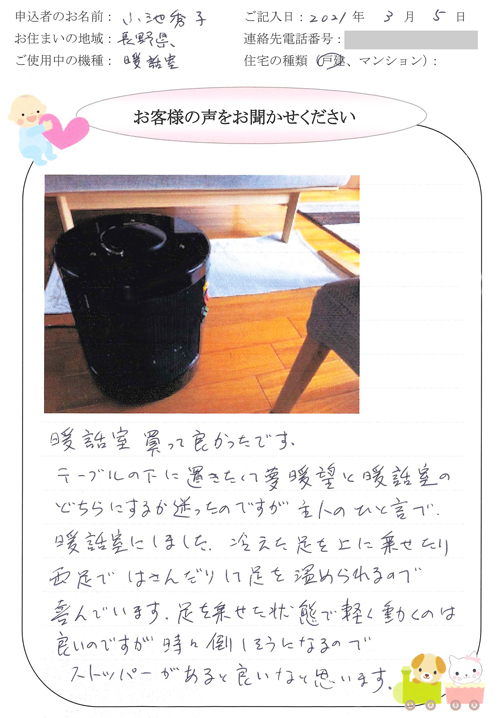 申込者のお名前： 小池秀子 ご記入日：2021年 3月 5日
お住まいの地域： 長野県 連絡先電話番号：
ご使用中の機種： 暖話室 住宅の種類（戸建、マンション）：
お客様の声をお聞かせください
暖話室 買って良かったです。
テーブルの下に置きたくて夢暖望と暖話室の
どちらにするか迷ったのですが主人のひと言で、
暖話室にしました。冷えた足を上に乗せたり
両足で はさんだりして足を温められるので
喜んでいます。足を乗せた状態で軽く動くのは
良いのですが 時々倒しそうになるので
ストッパーがあると良いなと思います。